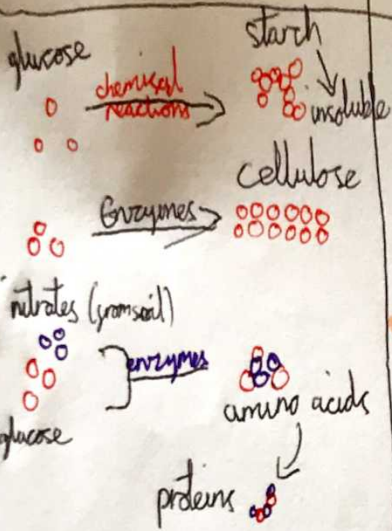 starch
glucose
chemical
reactions
insoluble
cellulose
Enzymes
nitrates (from soil)
enzymes
glucose
amino acids
proteins